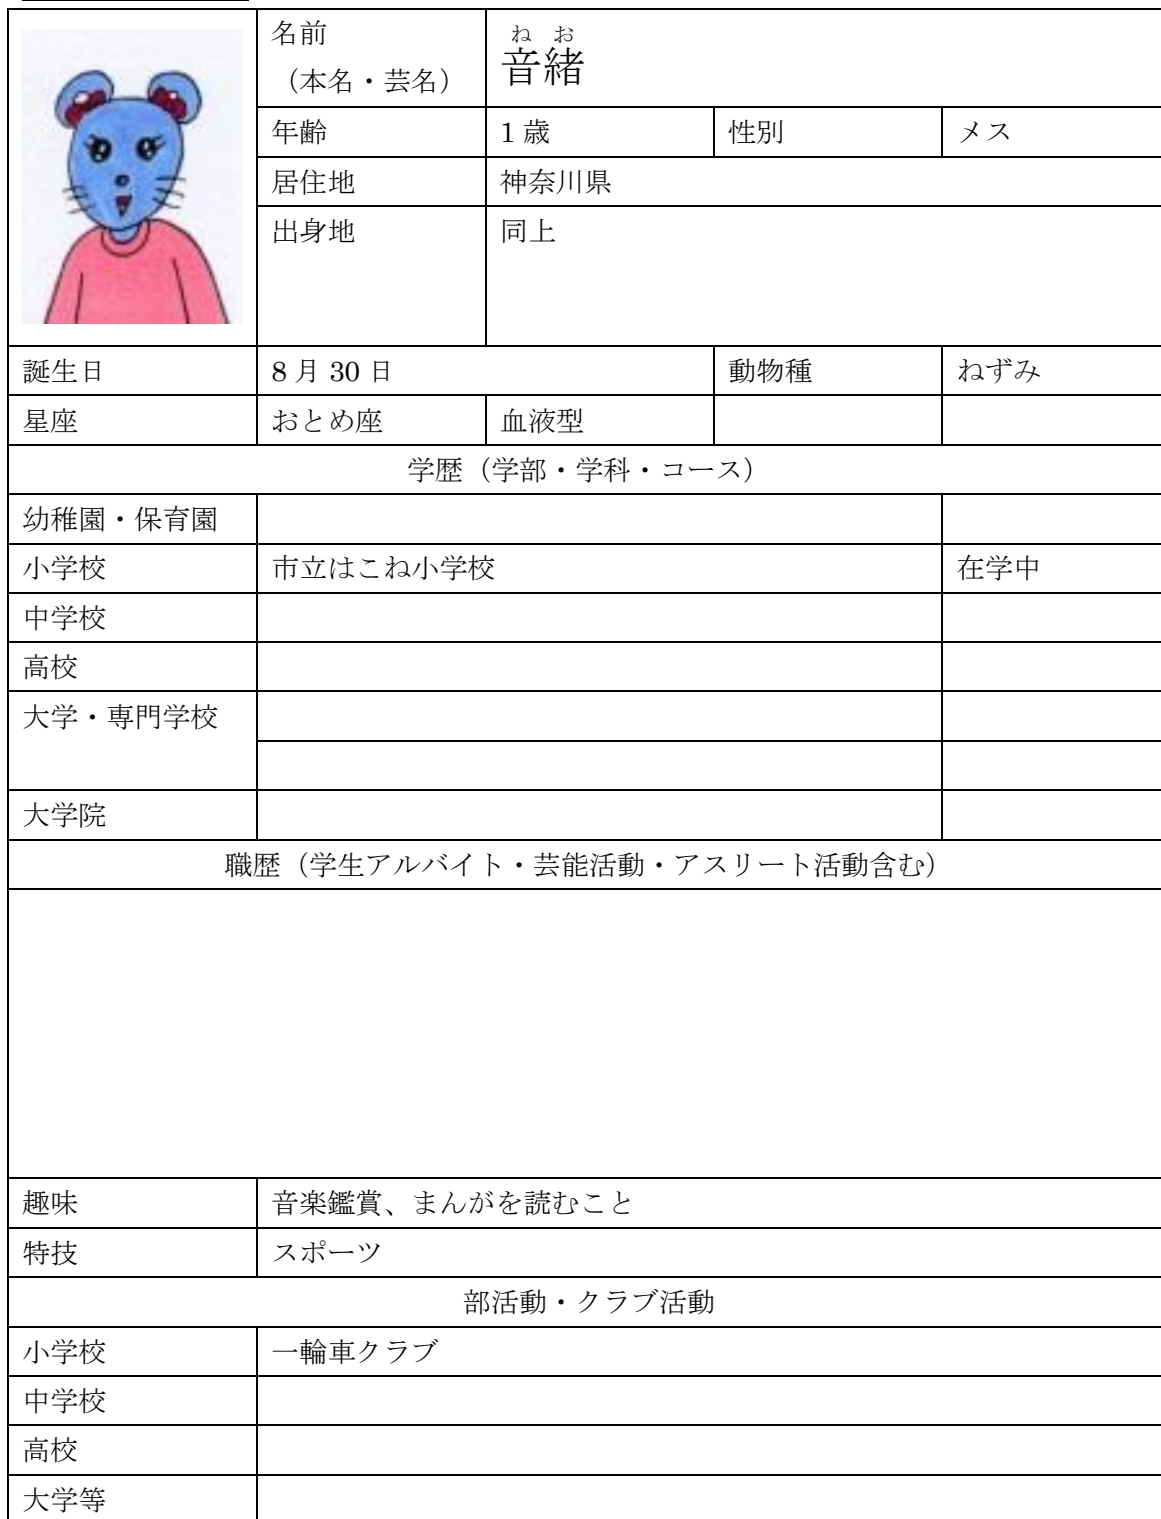 名前 ねお
（本名・芸名） 音緒
年齢 1歳 性別 メス
居住地 神奈川県
出身地 同上
誕生日 8月30日 動物種 ねずみ
星座 おとめ座 血液型
学歴（学部・学科・コース）
幼稚園・保育園
小学校 市立はこね小学校 在学中
中学校
高校
大学・専門学校
大学院
職歴（学生アルバイト・芸能活動・アスリート活動含む）
趣味 音楽鑑賞、まんがを読むこと
特技 スポーツ
部活動・クラブ活動
小学校 一輪車クラブ
中学校
高校
大学等